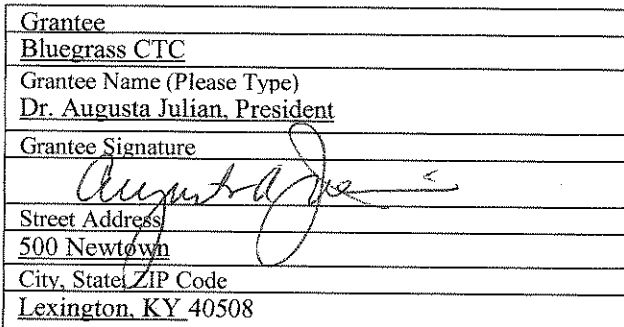 Grantee
Bluegrass CTC
Grantee Name (Please Type)
Dr. Augusta Julian, President
Grantee Signature
Augusta A Julian
Street Address
500 Newtown
City, State ZIP Code
Lexington, KY 40508